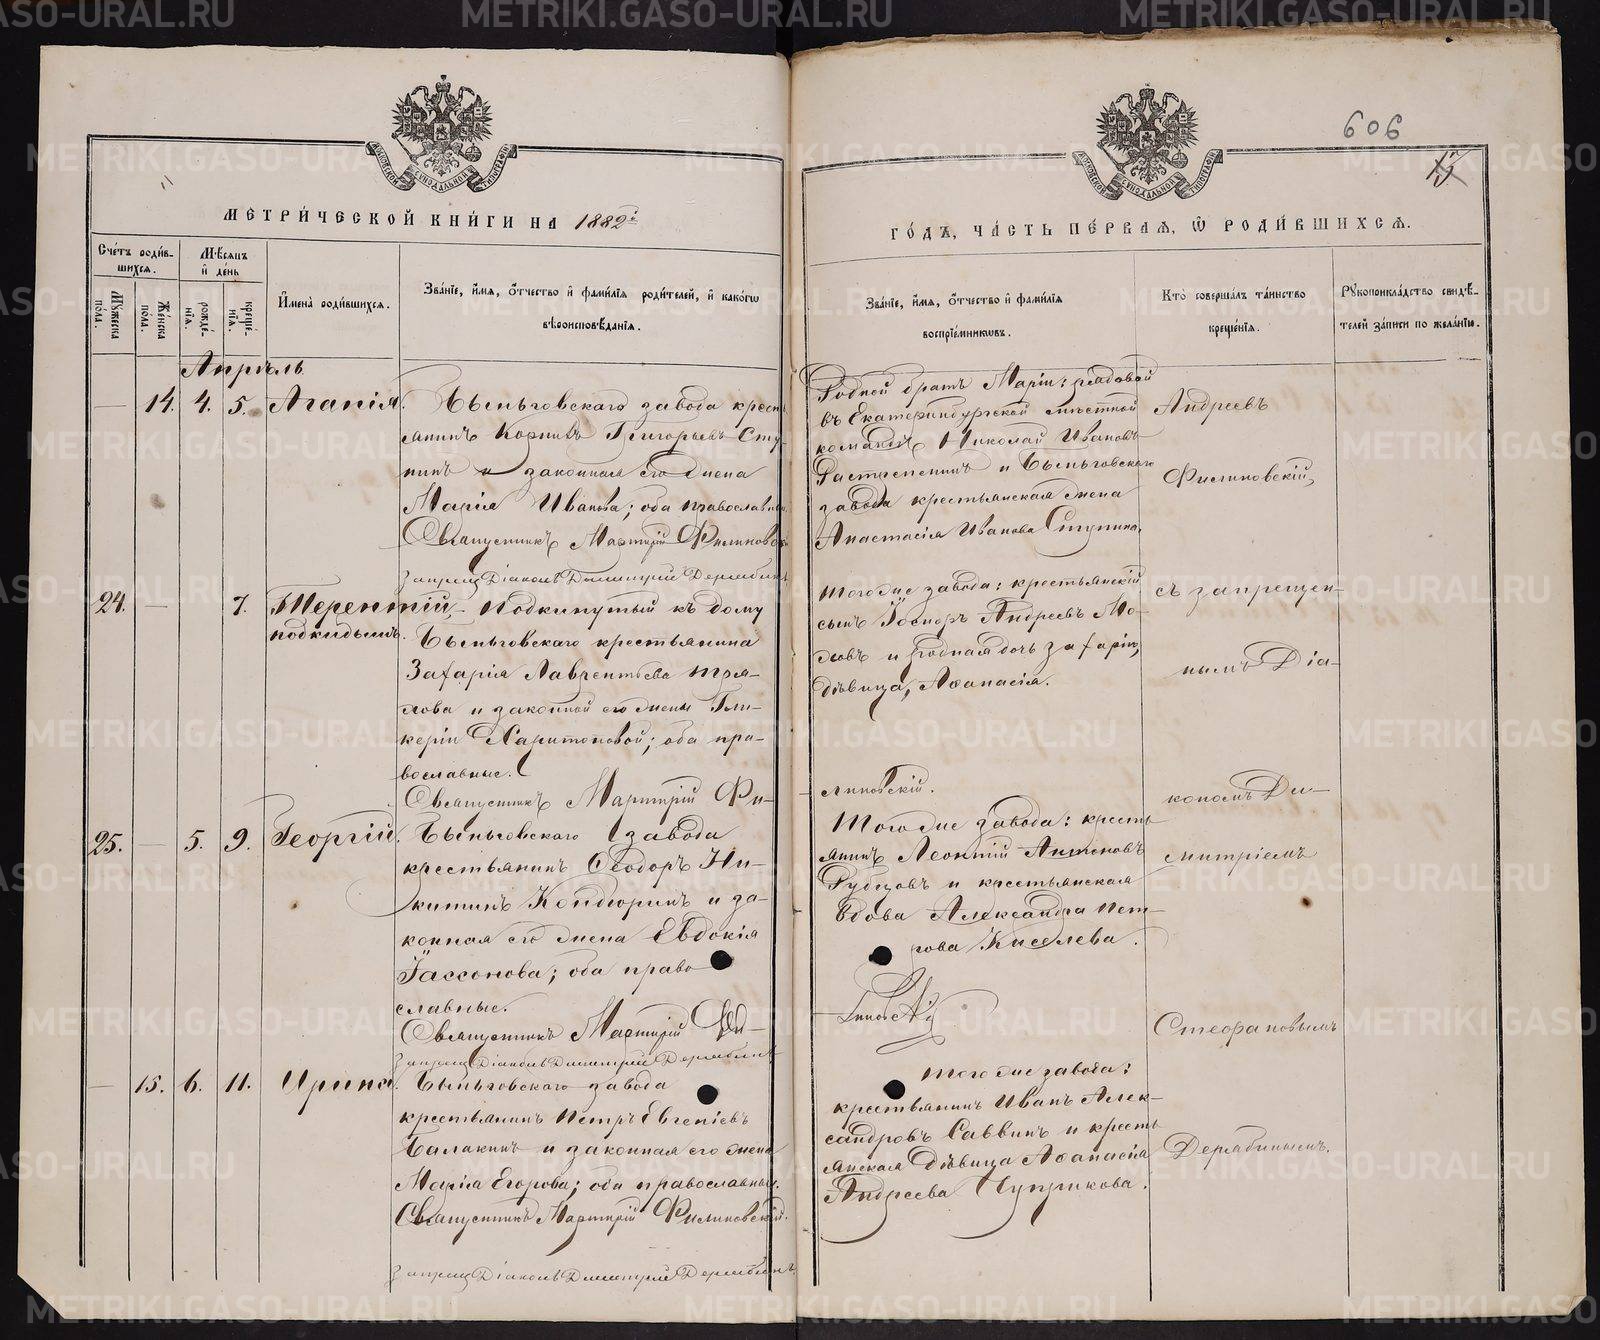 606
15
МЕТРИ́ЧЕСКОЙ КНИ́ГИ НА 1882й
ГО́ДЪ, ЧА́СТЬ ПЕ́РВАѦ, Ѽ РОДИ́ВШИХСѦ.
Сче́тъ роди́в-
шихсѧ.
Мѣсѧцъ
и де́нь
Му́жеска
по́ла.
Же́нска
по́ла.
рожде́-
нїѧ.
креще́-
нїѧ.
Имена̀ роди́вшихсѧ.
Зва́нїе, и́мѧ, о́тчество и фами́лїѧ роди́телей, и како́гѡ
вѣроисповѣ́данїѧ.
Зва́нїе, и́мѧ, о́тчество и фами́лїѧ
воспрїе́мниковъ.
Кто̀ соверша́лъ та́инство
креще́нїѧ.
Рꙋкоприкла́дство свидѣ́-
телей за́писи по жела́нїю.
Апрѣль
— 14. 4. 5. Агапія.
Быньговскаго завода кресть
янинъ Корнилъ Григорьевъ Сту-
пинъ и законная его жена
Марія Иванова; оба православные
Священникъ Мартирій Филиновскій
Запрещ. Діаконъ Димитрій Дерябинъ
Родной братъ Маріи: рядовой
въ Екатеринбургской мѣстной
команды Николай Ивановъ
Растрепенинъ и Быньговскаго
завода крестьянская жена
Анастасія Иванова Ступина.
Андреевъ
Филиновскій,
24. — 7. Терентій,
подкидышъ.
Подкинутый къ дому
Быньговскаго крестьянина
Захарія Лаврентьева
и законной его жены Гли-
керіи Харитоновой; оба пра-
вославные.
Священникъ Мартирій Фи-
линовскій.
Тогоже завода: крестьянскій
сынъ Андреевъ Мо-
и родная дочь Захарія,
дѣвица, Аѳанасія.
съ запрещен-
нымъ Діа-
кономъ Ди-
25. — 5. 9. Георгій.
Быньговскаго завода
крестьянинъ Ѳеодоръ Ни-
китинъ Кондюринъ и за-
конная его жена Евдокія
Іассонова; оба право
славные.
Священникъ Мартирій Фи-
линовскій
Запрещ. Діаконъ Димитрій Дерябинъ
Тогоже завода: кресть
янинъ Леонтій Антоновъ
Рубцовъ и крестьянская
вдова Александра Пет-
рова Киселева.
митріемъ
Стефановымъ
— 15. 6. 11. Ирина.
Быньговскаго завода
крестьянинъ Петръ Евгеніевъ
Балакинъ и законная его жена
Марія Егорова; оба православные.
Священникъ Мартирій Филиновскій.
Запрещ. Діаконъ Димитрій Дерябинъ.
Тогоже завода:
крестьянинъ Иванъ Алек-
сандровъ Саввинъ и кресть
янская дѣвица Аѳанасія
Андреева Чуприкова.
Дерябинымъ.
METRIKI.GASO-URAL.RU